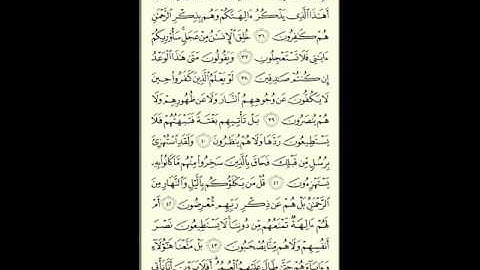 أَهَٰذَا ٱلَّذِى يَذْكُرُ ءَالِهَتَكُمْ وَهُم بِذِكْرِ ٱلرَّحْمَٰنِ
هُمْ كَٰفِرُونَ ٣٦ خُلِقَ ٱلْإِنسَٰنُ مِنْ عَجَلٍ سَأُو۟رِيكُمْ
ءَايَٰتِى فَلَا تَسْتَعْجِلُونِ ٣٧ وَيَقُولُونَ مَتَىٰ هَٰذَا ٱلْوَعْدُ
إِن كُنتُمْ صَٰدِقِينَ ٣٨ لَوْ يَعْلَمُ ٱلَّذِينَ كَفَرُوا۟ حِينَ
لَا يَكُفُّونَ عَن وُجُوهِهِمُ ٱلنَّارَ وَلَا عَن ظُهُورِهِمْ وَلَا
هُمْ يُنصَرُونَ ٣٩ بَلْ تَأْتِيهِم بَغْتَةً فَتَبْهَتُهُمْ فَلَا
يَسْتَطِيعُونَ رَدَّهَا وَلَا هُمْ يُنظَرُونَ ٤٠ وَلَقَدِ ٱسْتُهْزِئَ
بِرُسُلٍ مِّن قَبْلِكَ فَحَاقَ بِٱلَّذِينَ سَخِرُوا۟ مِنْهُم مَّا كَانُوا۟ بِهِۦ
يَسْتَهْزِءُونَ ٤١ قُلْ مَن يَكْلَؤُكُم بِٱلَّيْلِ وَٱلنَّهَارِ مِنَ
ٱلرَّحْمَٰنِ بَلْ هُمْ عَن ذِكْرِ رَبِّهِم مُّعْرِضُونَ ٤٢ أَمْ
لَهُمْ ءَالِهَةٌ تَمْنَعُهُم مِّن دُونِنَا لَا يَسْتَطِيعُونَ نَصْرَ
أَنفُسِهِمْ وَلَا هُم مِّنَّا يُصْحَبُونَ ٤٣ بَلْ مَتَّعْنَا هَٰٓؤُلَآءِ
وَءَابَآءَهُمْ حَتَّىٰ طَالَ عَلَيْهِمُ ٱلْعُمُرُ أَفَلَا يَرَوْنَ أَنَّا نَأْتِى